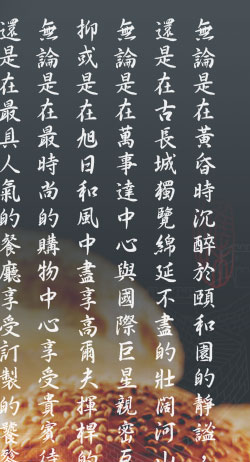 無論是在黃昏時沉醉於頤和園的靜謐，
還是在古長城獨覽綿延不盡的壯闊河山
無論是在萬事達中心與國際巨星親密互
抑或是在旭日和風中盡享高爾夫揮桿的
無論是在最時尚的購物中心享受貴賓待
還是在最具人氣的餐廳享受訂製的饕餮